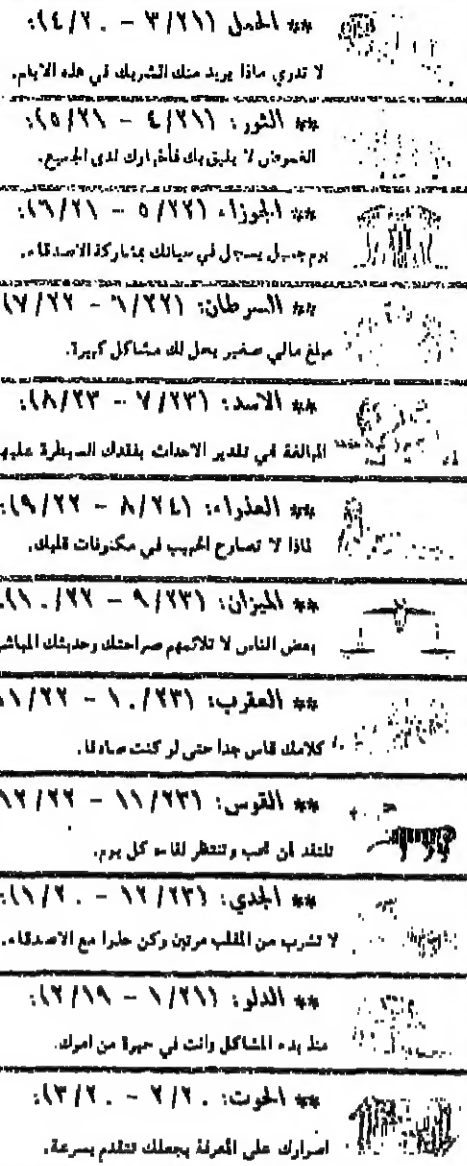 ** الحمل (٣/٢١ – ٤/٢٠):
لا تدري ماذا يريد منك الشريك في هذه الايام.
** الثور: (٤/٢١ – ٥/٢١):
الغموض لا يليق بك فأخبارك لدى الجميع.
** الجوزاء: (٥/٢٢ – ٦/٢١):
يوم جميل يسجل في حياتك بمشاركة الاصدقاء.
** السرطان: (٦/٢٢ – ٧/٢٢)
مبلغ مالي صغير يحل لك مشاكل كبيرة.
** الاسد: (٧/٢٣ – ٨/٢٣):
المبالغة في تقدير الاحداث يفقدك السيطرة عليها
** العذراء: (٨/٢٤ – ٩/٢٢):
لماذا لا تصارح الحبيب في مكنونات قلبك.
** الميزان: (٩/٢٣ – ١٠/٢٢).
بعض الناس لا تلائمهم صراحتك وحديثك المباشر
** العقرب: (١٠/٢٣ – ١١/٢٢
كلامك قاس جدا حتى لو كنت صادقا.
** القوس: (١١/٢٣ – ١٢/٢٢
تلتقد لمن تحب وتنتظر لقاءه كل يوم.
** الجدي: (١٢/٢٣ – ١/٢٠):
لا تشرب من المقلب مرتين وكن حذرا مع الاصدقاء.
** الدلو: (١/٢١ – ٢/١٩):
منذ بدء المشاكل وانت في حيرة من امرك.
** الحوت: ٢/٢٠ – ٣/٢٠):
اصرارك على المعرفة يجعلك تتقدم بسرعة.